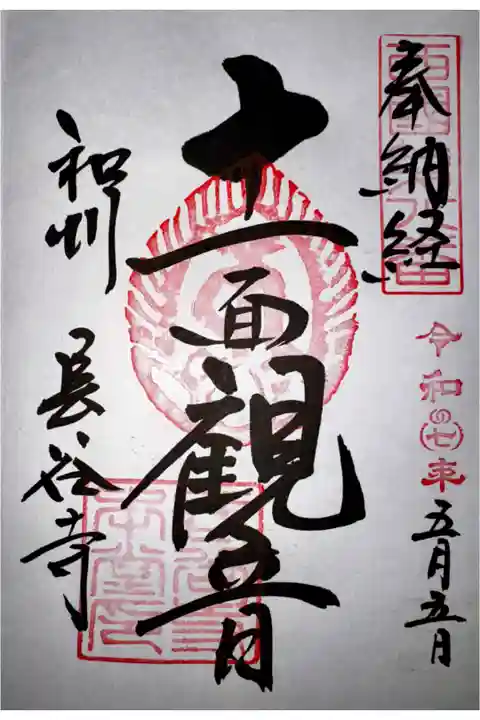 奉納経
西国第八番
令和七年五月五日
十一面観音
和州
長谷寺